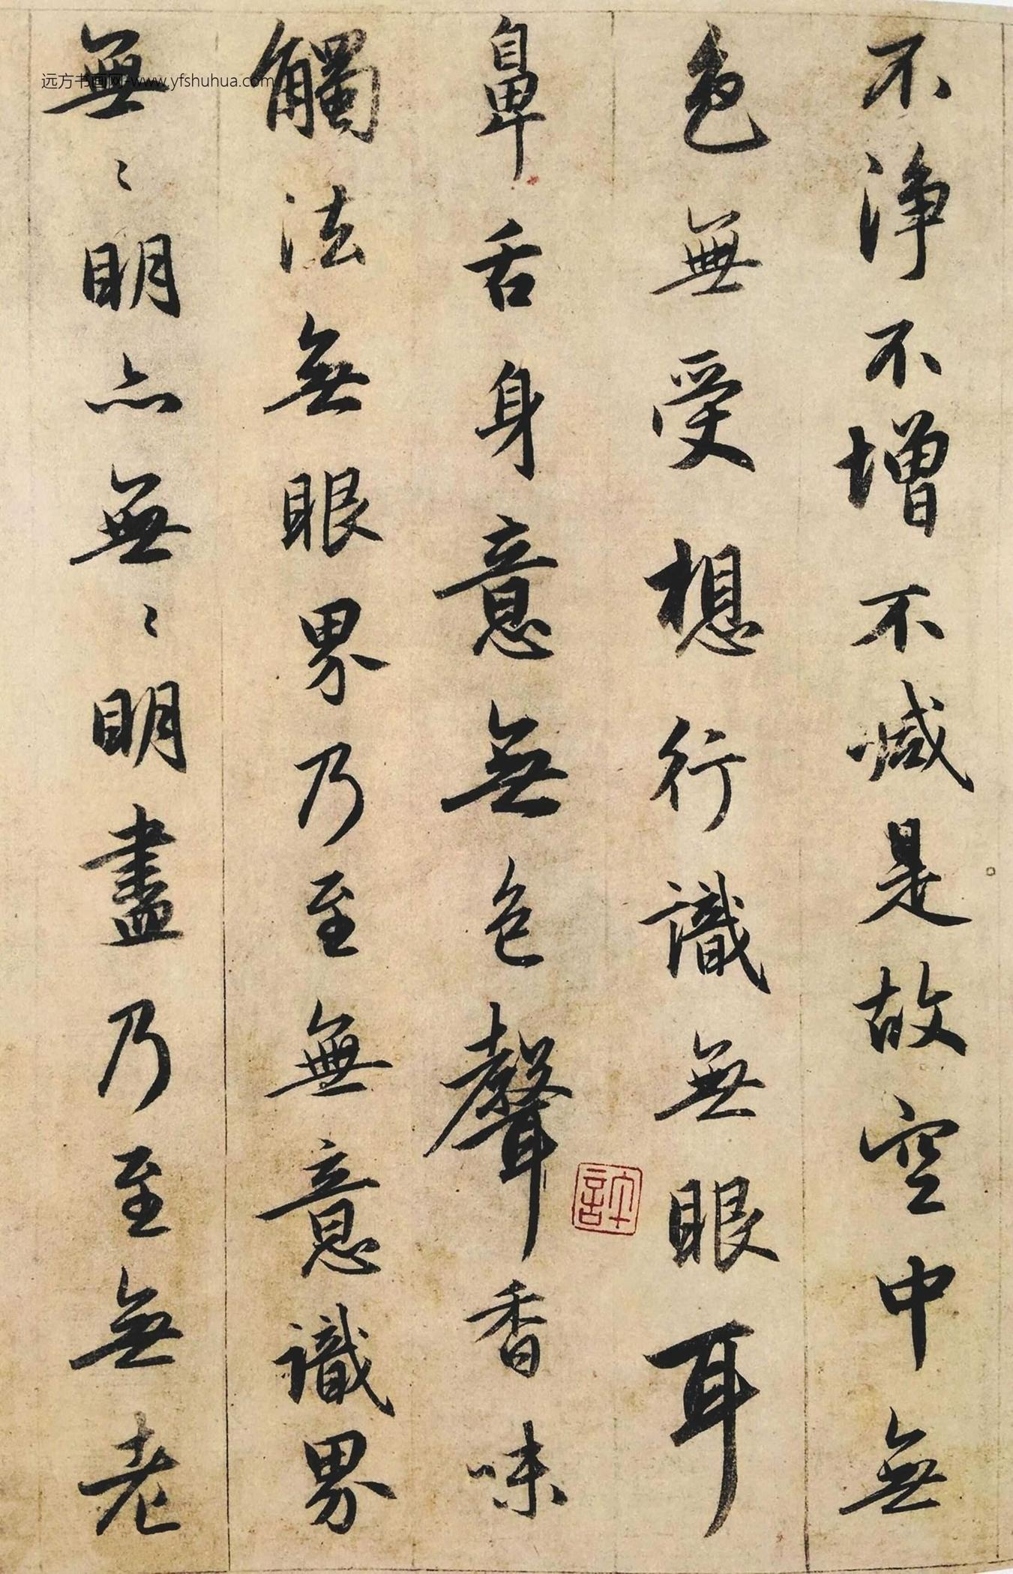 不淨不增不減是故空中無
色無受想行識無眼耳
鼻舌身意無色聲香味
觸法無眼界乃至無意識界
無〻明亦無〻明盡乃至無老
許
远方书画网-www.yfshuhua.com